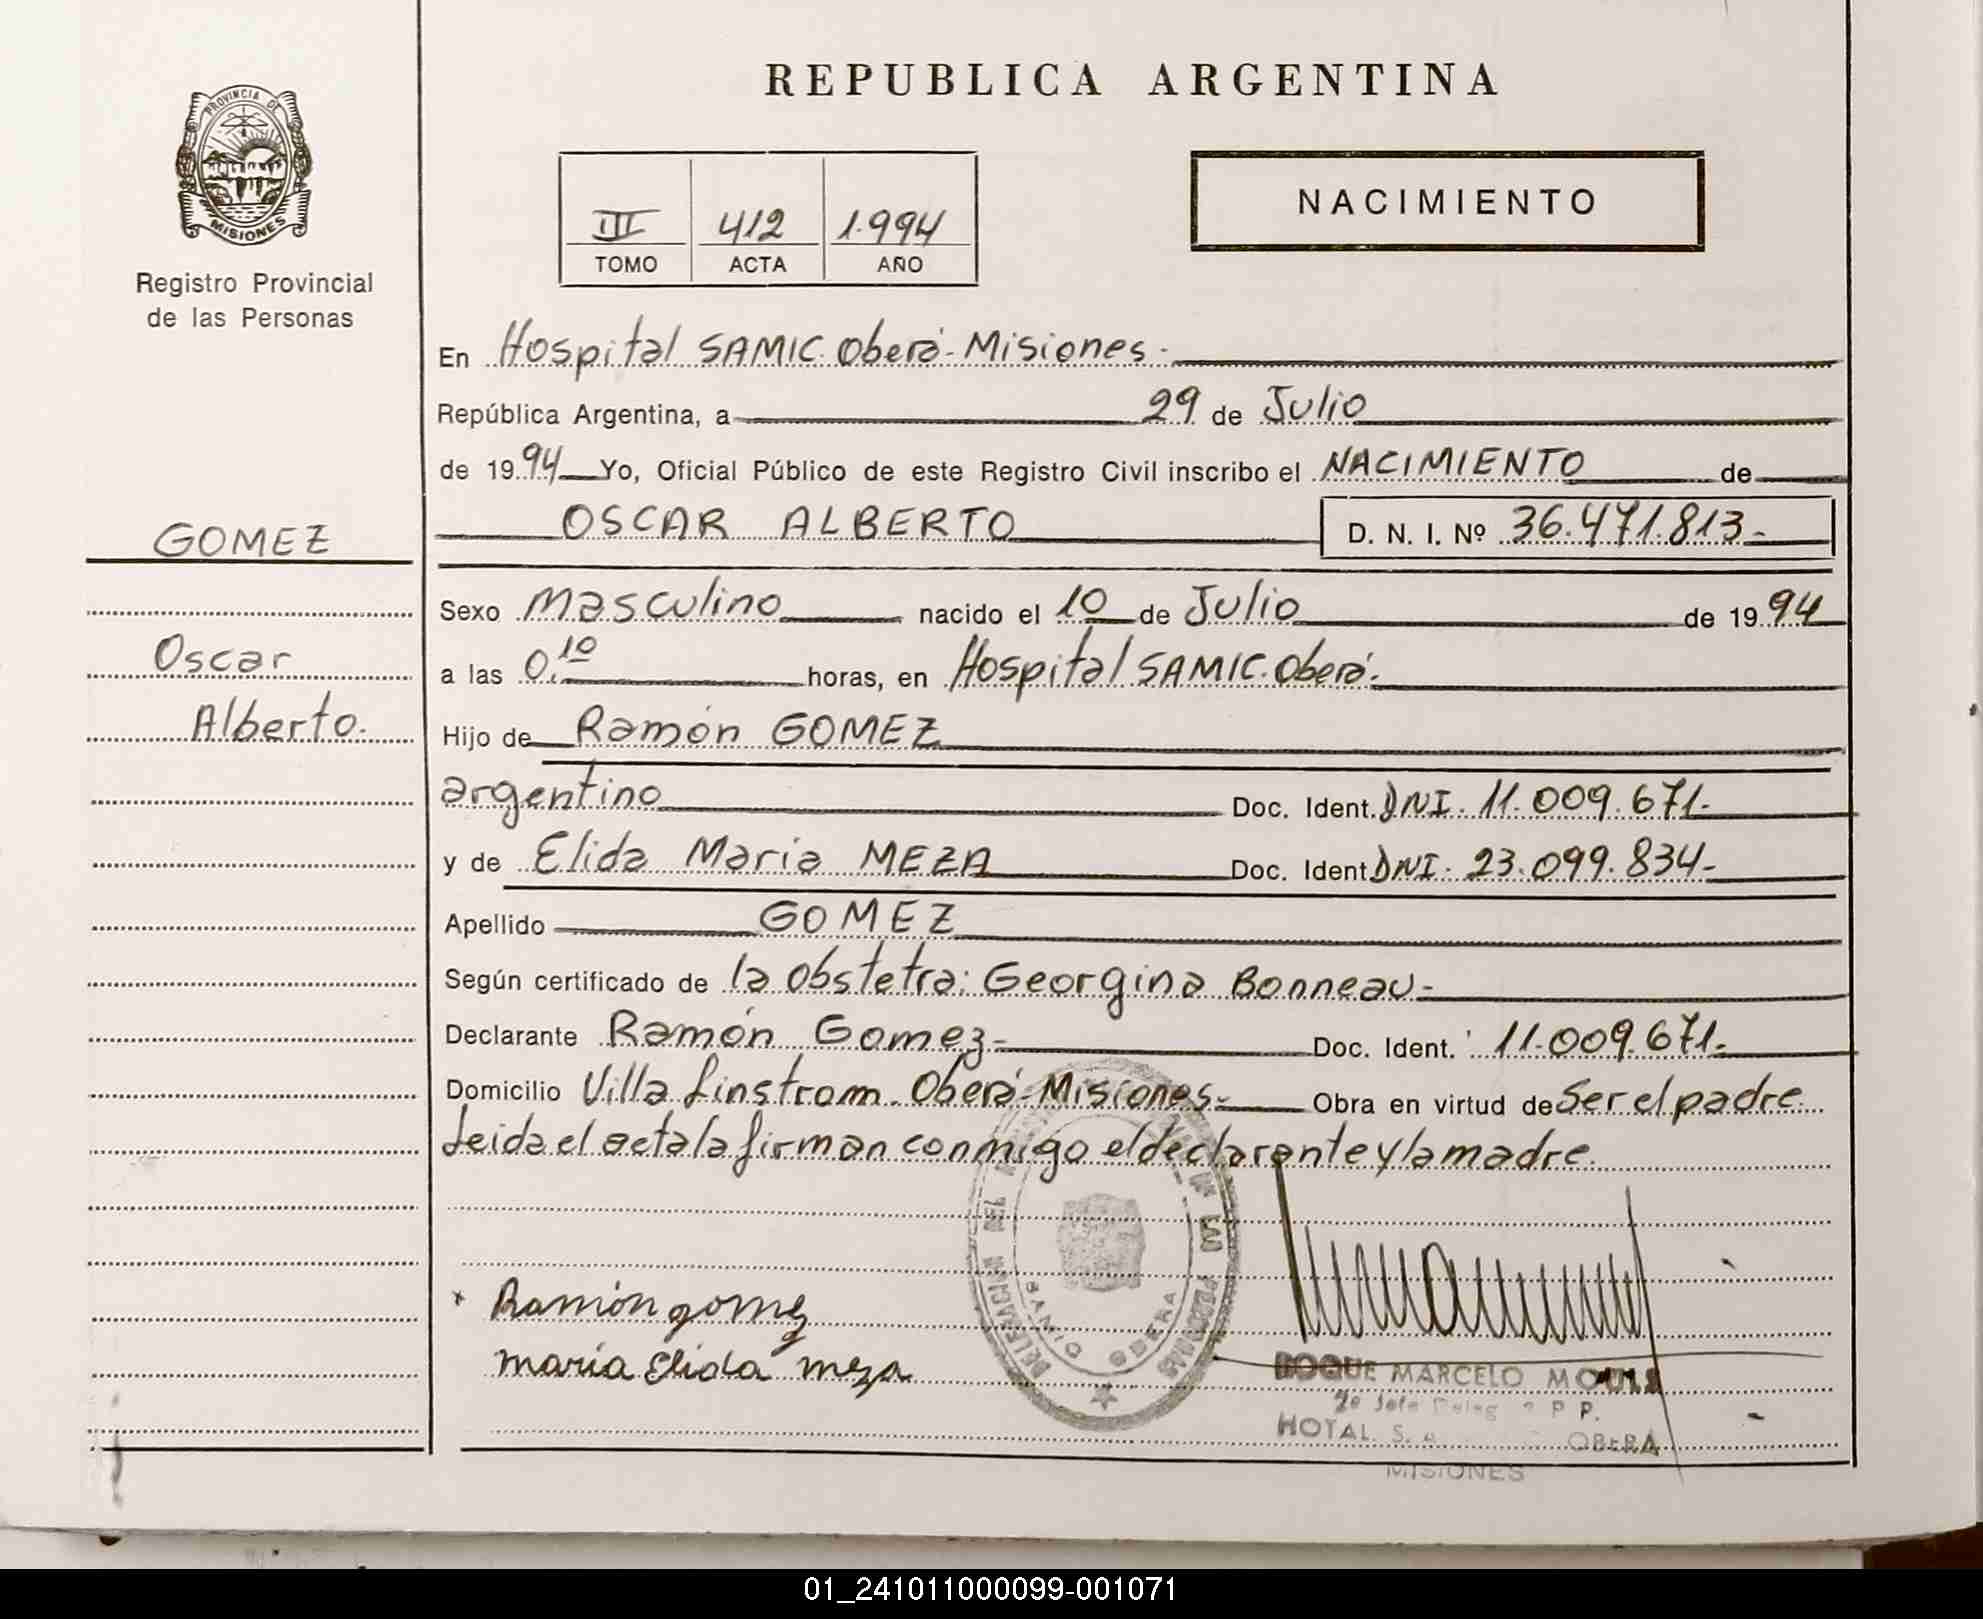 REPUBLICA ARGENTINA
PROVINCIA DE
MISIONES
Registro Provincial
de las Personas
III 412 1.994
TOMO ACTA AÑO
NACIMIENTO
En Hospital SAMIC. Oberá - Misiones.
República Argentina, a 29 de Julio
de 19 94 Yo, Oficial Público de este Registro Civil inscribo el NACIMIENTO de
GOMEZ
OSCAR ALBERTO D. N. I. Nº 36.471.813-
Sexo Masculino nacido el 10 de Julio de 19 94
Oscar
a las 0.10 horas, en Hospital SAMIC. Oberá.
Alberto.
Hijo de Ramón GOMEZ
argentino Doc. Ident. DNI. 11.009.671-
y de Elida Maria MEZA Doc. Ident DNI. 23.099.834-
Apellido GOMEZ
Según certificado de la Obstetra: Georgina Bonneau-
Declarante Ramón Gomez- Doc. Ident. 11.009.671-
Domicilio Villa Linstrom. Oberá-Misiones- Obra en virtud de Ser el padre
Leida el acta la firman conmigo el declarante y la madre.
Ramón gomez
maría Elida meza
OBERA
ROQUE MARCELO
P. P.
HOTAL. S. A OBERA
MISIONES
01_241011000099-001071